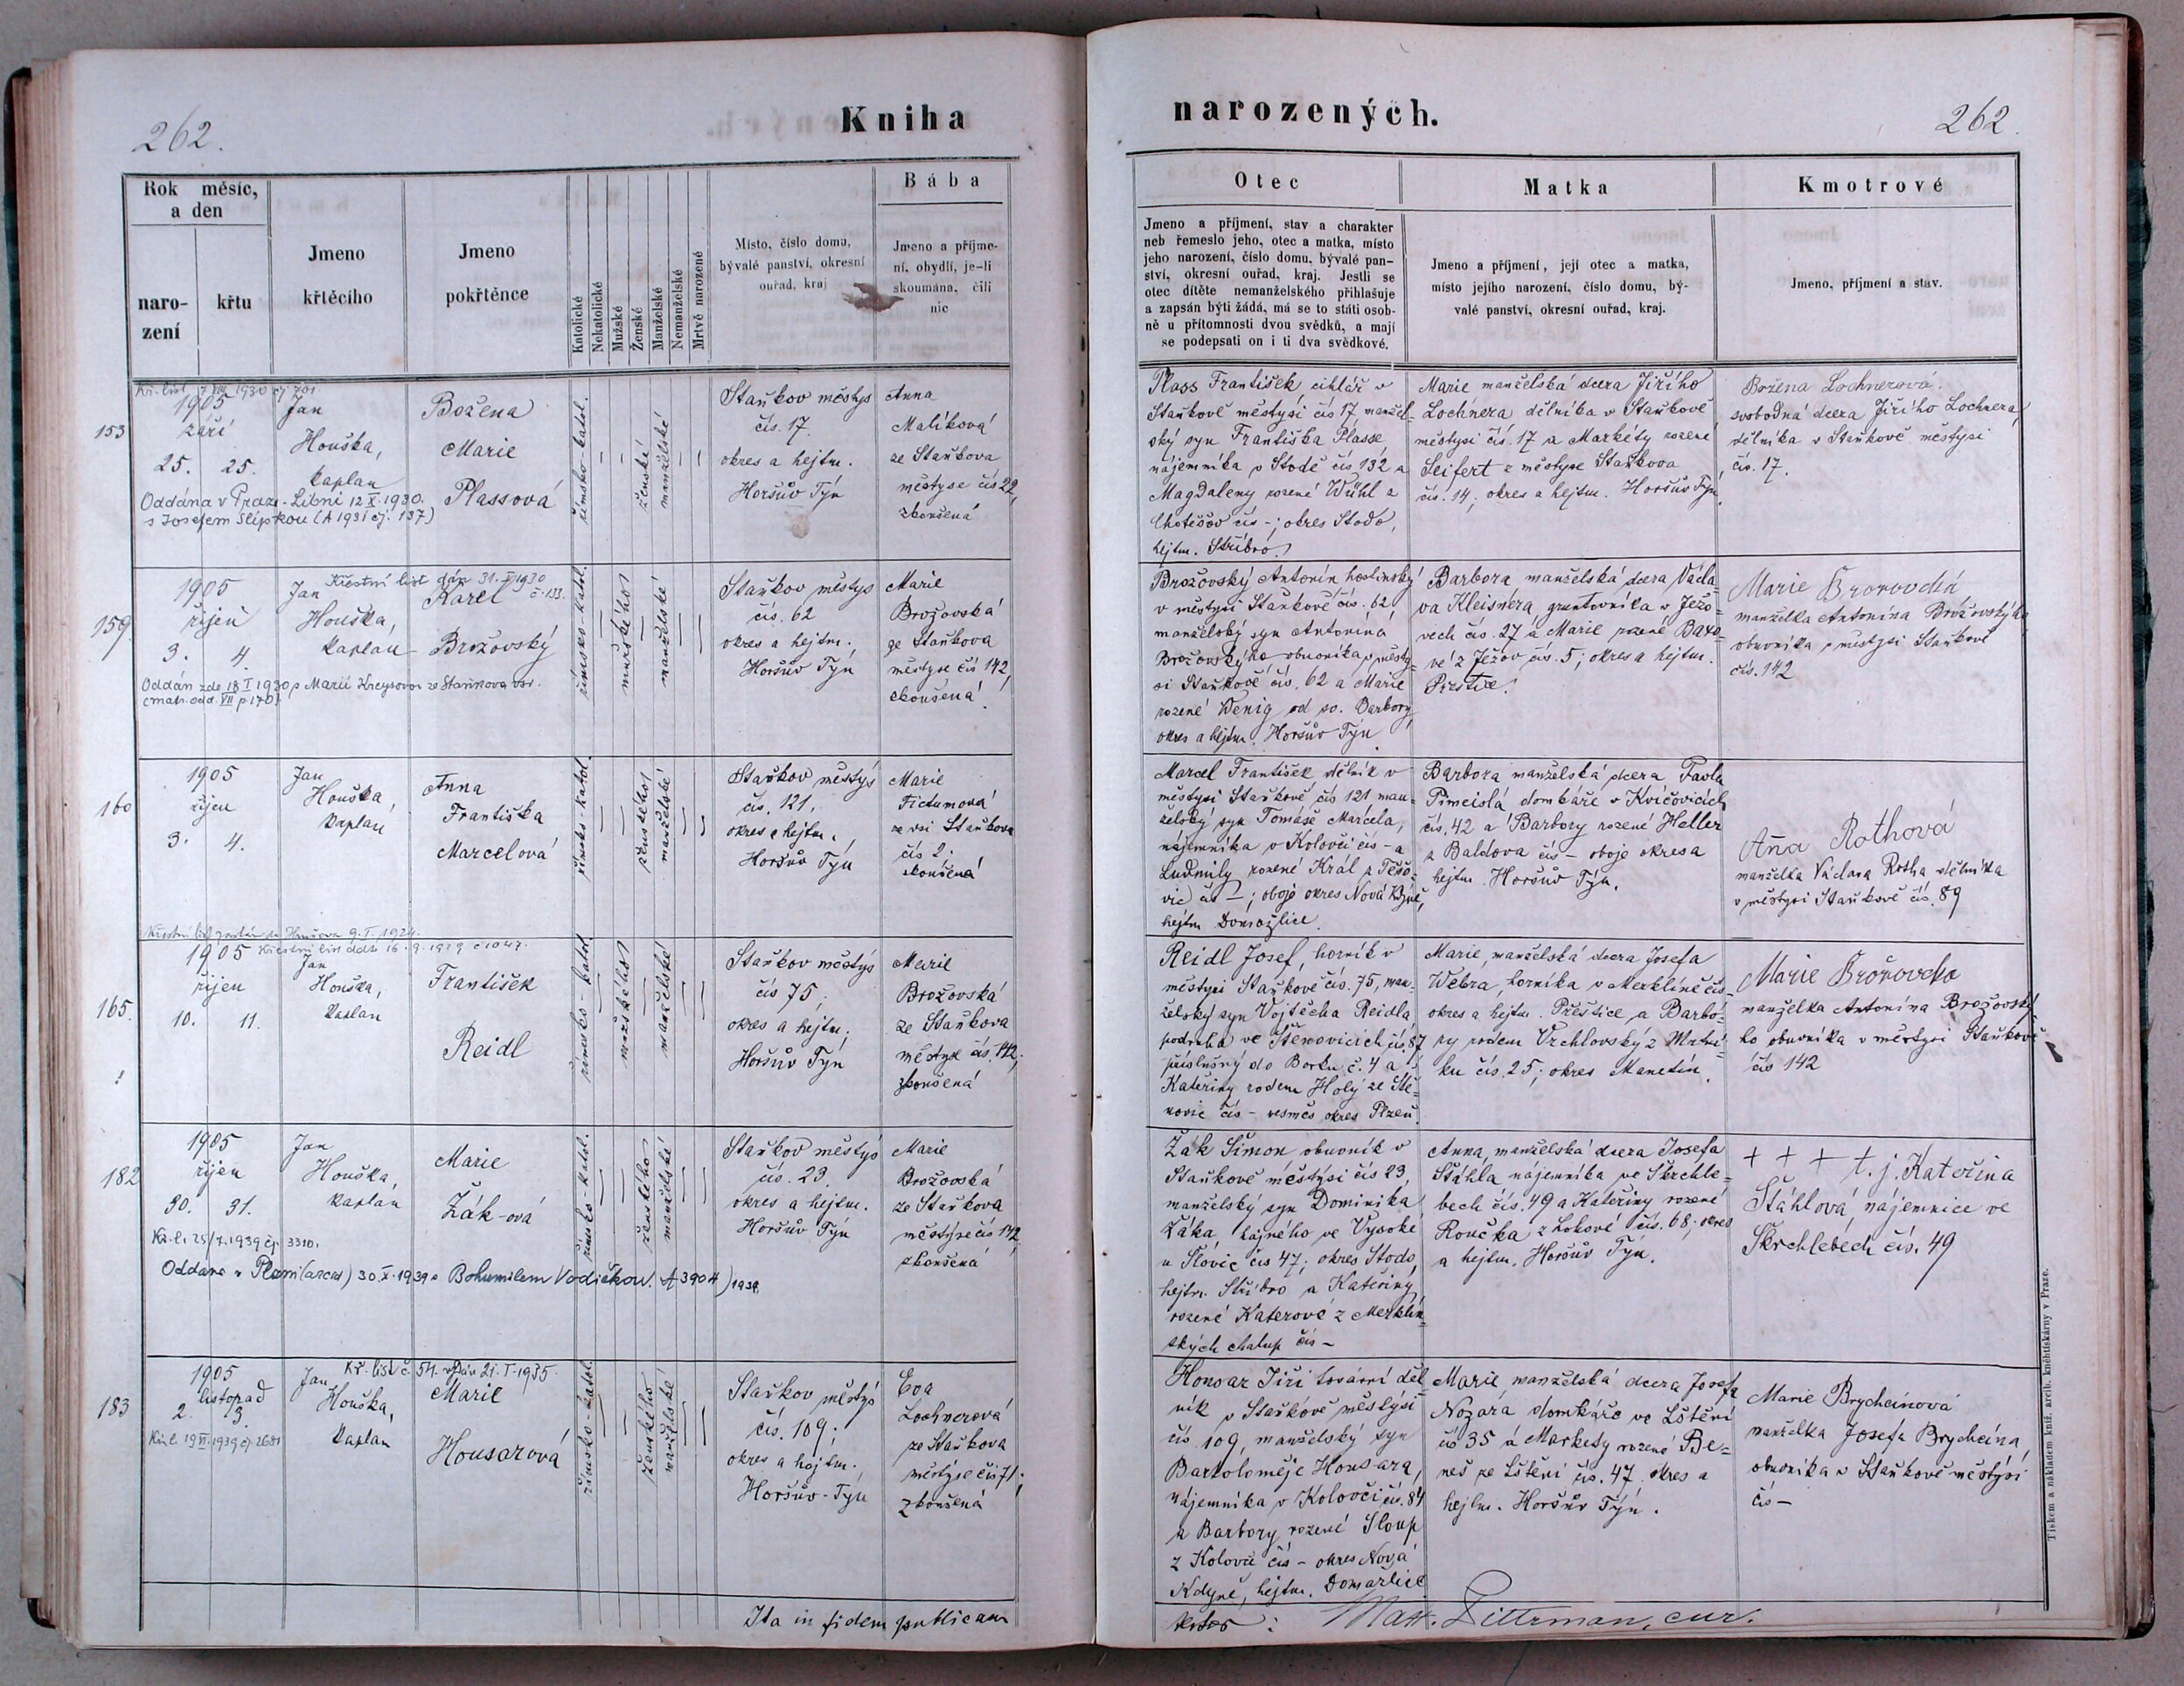 262.
Kniha
Rok měsíc,
a den
naro-
zení
křtu
Jmeno
křtěcího
Jmeno
pokřtěnce
Katolické
Nekatolické
Mužské
Ženské
Manželské
Nemanželské
Mrtvě narozené
Místo, číslo domu,
bývalé panství, okresní
ouřad, kraj
Bába
Jmeno a příjme-
ní, obydlí, je-li
skoumána, čili
nic
153
Kř. list 7. 1930 čj. 701
1905
září
25. 25.
Jan
Houška,
kaplan
Božena
Marie
Plassová
římsko-katol.
ženské
manželské
Staňkov městys
čís. 17.
okres a hejtm.
Horšův Týn
Anna
Malíková
ze Staňkova
městyse čís 22,
zkoušená
Oddána v Praze-Libni 12.X.1930.
s Josefem Slípkou (A 1931 čj. 137)
159
1905
říjen
3. 4.
Jan
Houška,
kaplan
Křestní list dán 31. 1930
č. 133.
Karel
Brožovský
římsko-katol.
mužského
manželské
Staňkov městys
čís. 62
okres a hejtm.
Horšův Týn
Marie
Brožovská
ze Staňkova
městyse čís 142,
zkoušená
Oddán zde 18 I 1930 s Marií Kreysovou ze Staňkova vsi.
(matr. odd. VII p. 170)
160
1905
říjen
3. 4.
Jan
Houška,
kaplan
Anna
Františka
Marcelová
římsko-katol.
ženského
manželské
Staňkov městys
čís. 121.
okres a hejtm.
Horšův Týn
Marie
Fictumová
ze vsi Staňkova
čís 2.
zkoušená
Křestní list 9. I. 1924.
165.
1905
říjen
10. 11.
Křestní list 16. 9. 1939 č 1047.
Jan
Houška,
kaplan
František
Reidl
římsko-katol.
mužského
manželské
Staňkov městys
čís 75;
okres a hejtm.
Horšův Týn
Marie
Brožovská
ze Staňkova
městyse čís. 142;
zkoušená
182
1905
říjen
30. 31.
Jan
Houška,
kaplan
Marie
Žák-ová
římsko-katol.
ženského
manželské
Staňkov městys
čís. 23.
okres a hejtm.
Horšův Týn
Marie
Brožovská
ze Staňkova
městyse čís 142,
zkoušená
Kř. l. 25/7. 1939 čj. 3310.
Oddána v Plzni (arcid) 30.X.1939 s Bohumilem Vodičkou. A 3904) 1939.
183
1905
listopad
2. 3.
Kř. l. 19 VI. 1939 čj. 2681
Jan
Houška,
kaplan
Kř. list č. 54. vydán 21. I. 1935.
Marie
Housarová
římsko-katol.
ženského
manželské
Staňkov městys
čís. 109;
okres a hejtm.
Horšův-Týn
Eva
Lochnerová
ze Staňkova
městyse čís 71;
zkoušená
Ita in fidem publicam
narozených.
262.
Otec
Jmeno a příjmení, stav a charakter
neb řemeslo jeho, otec a matka, místo
jeho narození, číslo domu, bývalé pan-
ství, okresní ouřad, kraj. Jestli se
otec dítěte nemanželského přihlašuje
a zapsán býti žádá, má se to státi osob-
ně u přítomnosti dvou svědků, a mají
se podepsati on i ti dva svědkové.
Matka
Jmeno a příjmení, její otec a matka,
místo jejího narození, číslo domu, bý-
valé panství, okresní ouřad, kraj.
Kmotrové
Jmeno, příjmení a stav.
Plass František, cihlář v
Staňkově městysi čís 17 manžel-
ský syn Františka Plasse
nájemníka v Stodě čís 132 a
Magdaleny rozené Wühl z
Chotěšov čís -; okres Stodo,
hejtm. Stříbro.
Marie manželská dcera Jiřího
Lochnera dělníka v Staňkově
městysi čís. 17 a Markéty rozené
Seifert z městyse Staňkova
čís. 14; okres a hejtm. Horšův Týn.
Božena Lochnerová.
svobodná dcera Jiřího Lochnera,
dělníka v Staňkově městysi
čís. 17.
Brožovský Antonín hostinský
v městysi Staňkově čís. 62,
manželský syn Antonína
Brožovského obuvníka v městy-
si Staňkově čís. 62 a Marie
rozené Wenig od sv. Barbory,
okres a hejtm. Horšův Týn
Barbora manželská dcera Václa-
va Kleisnera, gruntovníka v Ježo-
vech čís. 27 a Marie rozené Baxo-
vé z Ježov čís. 5; okres a hejtm.
Přeštice.
Marie Brožovská
manželka Antonína Brožovského
obuvníka v městysi Staňkově
čís. 142
Marcel František dělník v
městysi Staňkově čís 121 man-
želský syn Tomáše Marcela,
nájemníka v Kolovči čís - a
Ludmily rozené Král z Těšo-
vic čís -; oboje okres Nová Kdyně,
hejtm Domažlice.
Barbora manželská dcera Pavla
Pimeisla domkáře v Kvíčovicích
čís. 42 a Barbory rozené Heller
z Baldova čís - oboje okres a
hejtm. Horšův Týn.
Aña Rothová
manželka Václava Rotha dělníka
v městysi Staňkově čís. 89
Reidl Josef, horník v
městysi Staňkově čís. 75, man-
želský syn Vojtěcha Reidla
podruha ve Štěnovicích čís. 87
příslušný do Borku č. 4 a
Kateřiny rodem Holý ze Ště-
novic čís - vesměs okres Plzeň.
Marie, manželská dcera Josefa
Webra, horníka v Merklíně čís -
okres a hejtm. Přeštice a Barbo-
ry rodem Vrchlovský z Mrtní-
ku čís. 25; okres Manetín.
Marie Brožovska
manželka Antonína Brožovské-
ho obuvníka v městysi Staňkově
čís 142
Žák Šimon obuvník v
Staňkově městysi čís 23,
manželský syn Dominika
Žáka, hajného ve Vysoké
u Slovic čís 47; okres Stodo,
hejtm. Stříbro a Kateřiny
rozené Katerové z Merklín-
ských chalup čís -
Anna, manželská dcera Josefa
Štáhla nájemníka ve Škrchle-
bech čís. 49 a Kateřiny rozené
Roučka z Lokové čís. 68; okres
a hejtm. Horšův Týn.
+ + + t. j. Kateřina
Štáhlová, nájemnice ve
Škrchlebech čís. 49
Housar Jiří tovární děl-
ník v Staňkově městysi
čís. 109, manželský syn
Bartoloměje Housara,
nájemníka v Kolovči čís. 84
a Barbory rozené Sloup
z Kolovče čís - okres Nová
Kdyně, hejtm. Domažlice
Marie manželská dcera Josefa
Nozara domkáře ve Lštění
čís 35 a Markety rozené Be-
neš ze Lštění čís. 47. okres a
hejtm. Horšův Týn.
Marie Brycheinová
manželka Josefa Brycheína,
obuvníka v Staňkově-městysi
čís -
Matt. Dittrman, cur.
Tiskem a nákladem kníž. arcib. kněhtiskárny v Praze.